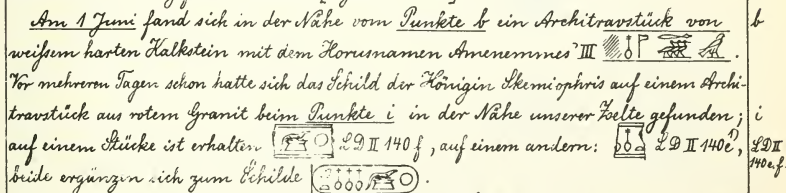 Am 1 Juni fand sich in der Nähe vom Punkte b ein Architravstück von b
weißem harten Kalkstein mit dem Horusnamen Amenemmes' III .
Vor mehreren Tagen schon hatte sich das Schild der Königin Skemiophris auf einem Archi-
travstück aus rotem Granit beim Punkte i in der Nähe unserer Zelte gefunden; i
auf einem Stücke ist erhalten LD II 140 f, auf einem andern: LD II 140 e¹), LD II
beide ergänzen sich zum Schilde . 140 e.f.